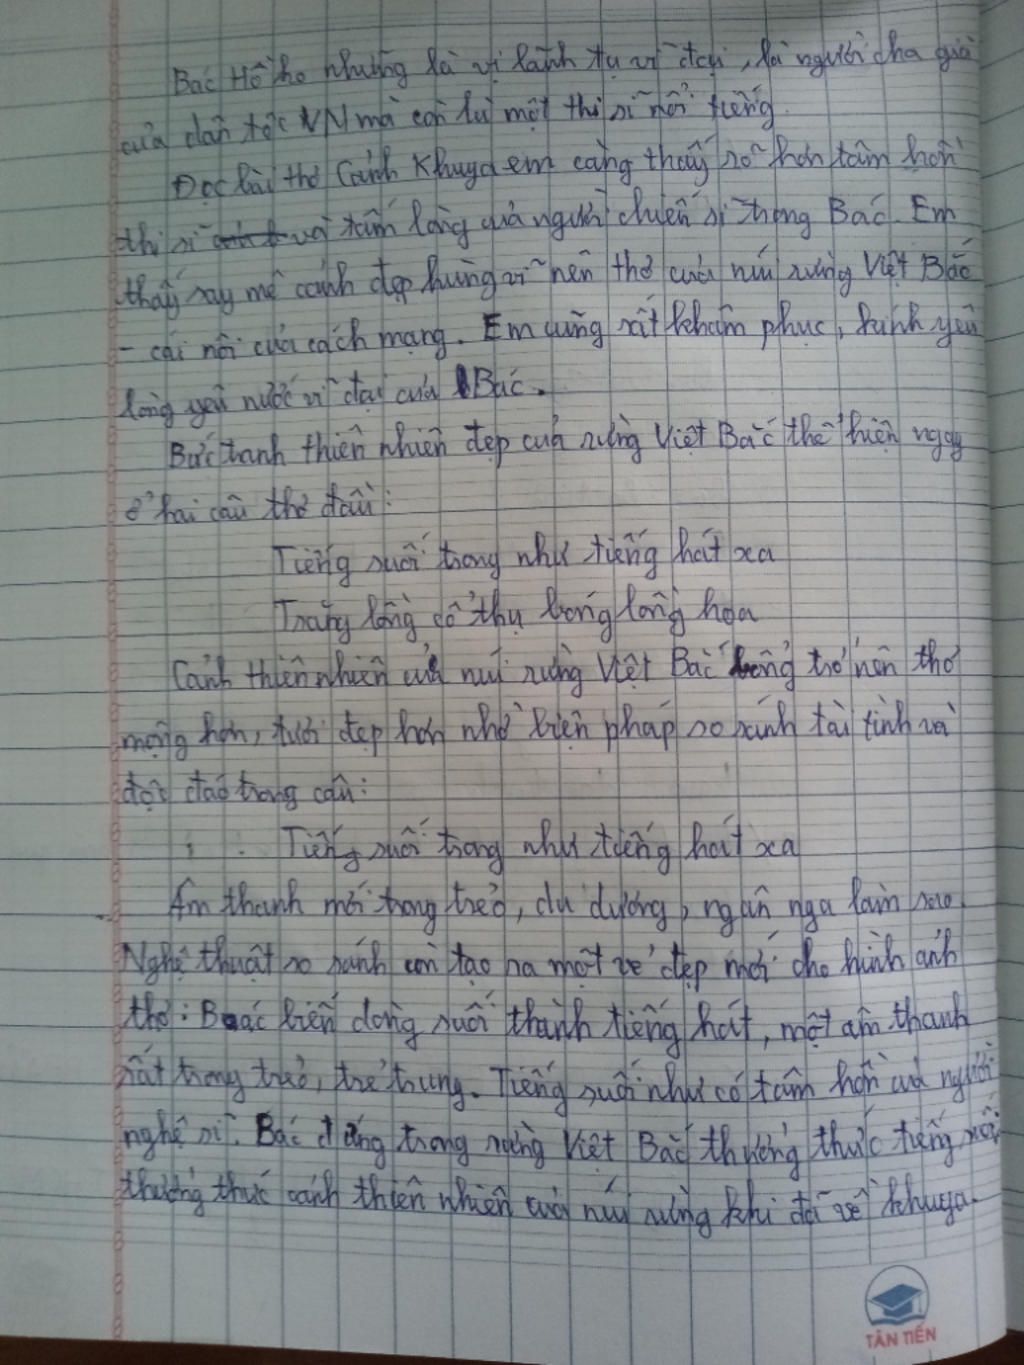 Bác Hồ ko những là vị lãnh tụ vĩ đại, là người cha già
của dân tộc VN mà còn là một thi sĩ nổi tiếng.
Đọc bài thơ Cảnh Khuya em càng thấy rõ hơn tâm hồn
thi sĩ và tấm lòng của người chiến sĩ trong Bác. Em
thấy say mê cảnh đẹp hùng vĩ nên thơ của núi rừng Việt Bắc
- cái nôi của cách mạng. Em cũng rất khâm phục, kính yêu
lòng yêu nước vĩ đại của Bác.
Bức tranh thiên nhiên đẹp của rừng Việt Bắc thể hiện ngay
ở hai câu thơ đầu:
Tiếng suối trong như tiếng hát xa
Trăng lồng cổ thụ bóng lồng hoa
Cảnh thiên nhiên của núi rừng Việt Bắc bỗng trở nên thơ
mộng hơn, tươi đẹp hơn nhờ biện pháp so sánh tài tình và
độc đáo trong câu:
Tiếng suối trong như tiếng hát xa
Âm thanh mới trong trẻo, du dương, ngân nga làm sao.
Nghệ thuật so sánh còn tạo ra một vẻ đẹp mới cho hình ảnh
thơ: Bác biến dòng suối thành tiếng hát, một âm thanh
rất trong trẻo, trẻ trung. Tiếng suối như có tâm hồn của người
nghệ sĩ. Bác đứng trong rừng Việt Bắc thưởng thức tiếng suối,
thưởng thức cảnh thiên nhiên của núi rừng khi đã về khuya.
TÂN TIẾN